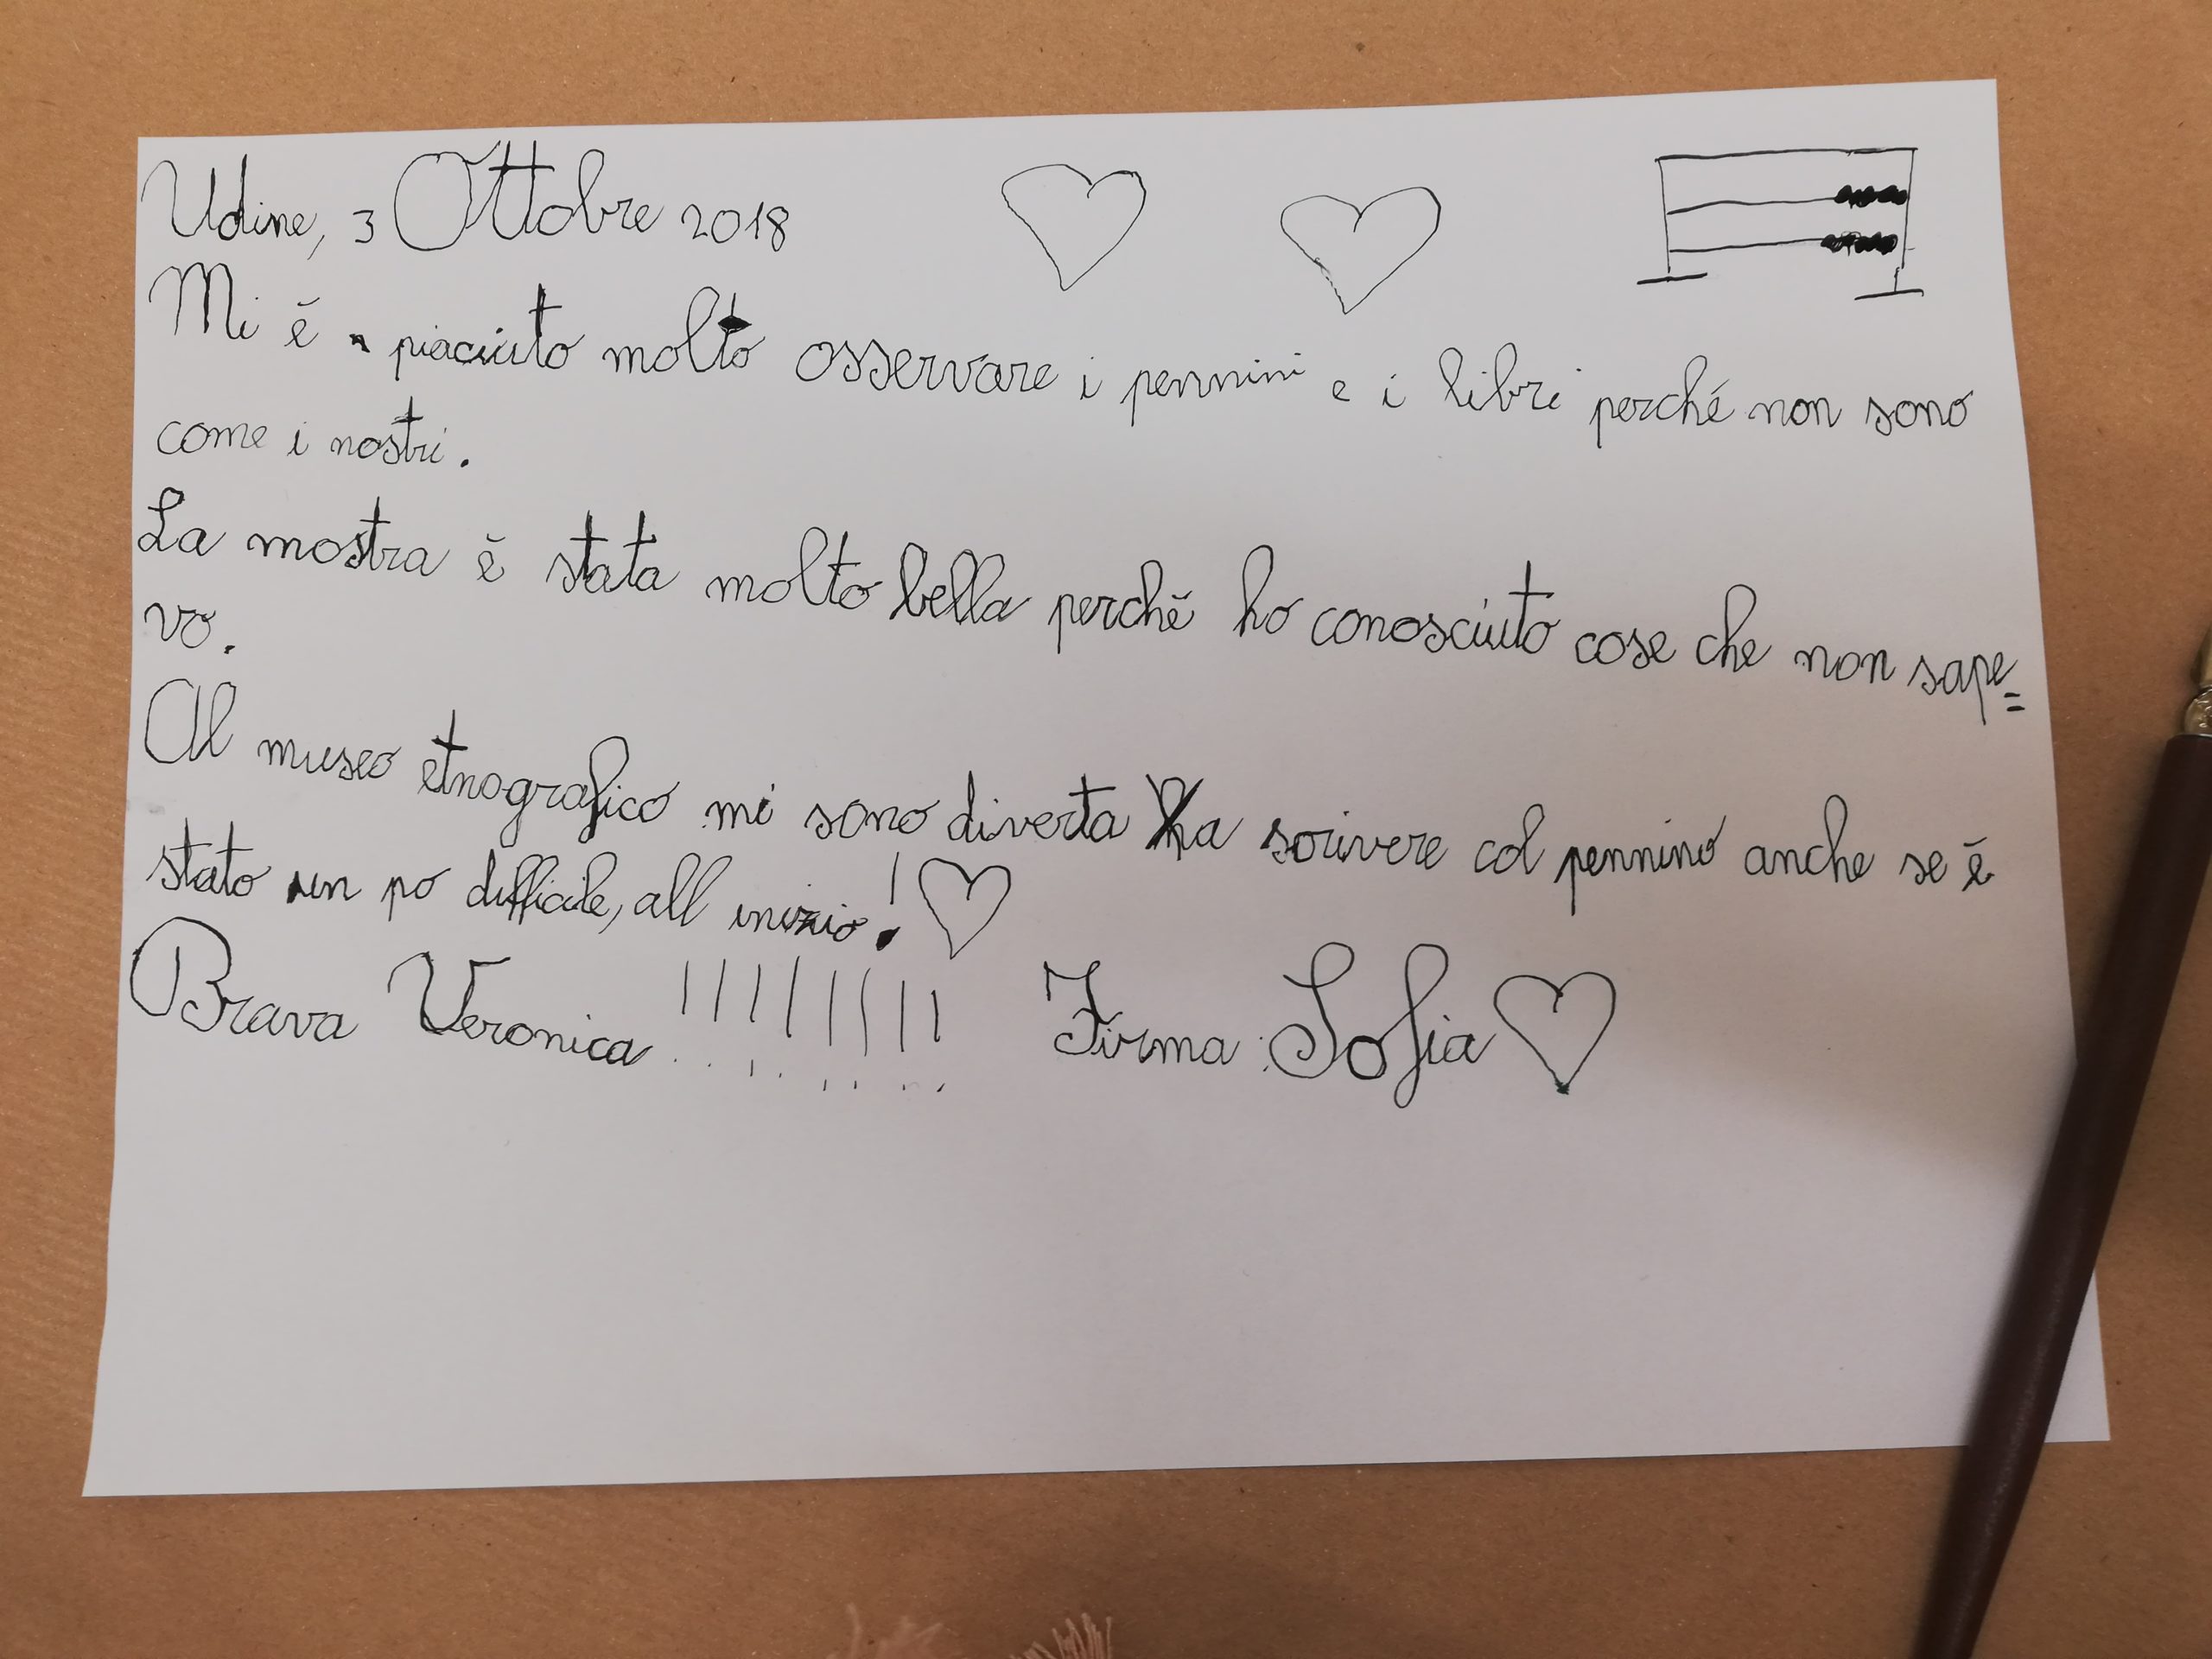 Udine, 3 Ottobre 2018
Mi è piaciuto molto osservare i pennini e i libri perché non sono
come i nostri.
La mostra è stata molto bella perché ho conosciuto cose che non sape=
vo.
Al museo etnografico mi sono diverta a scrivere col pennino anche se è
stato un po difficile, all inizio!
Brava Veronica !!!!!!!! Firma: Sofia